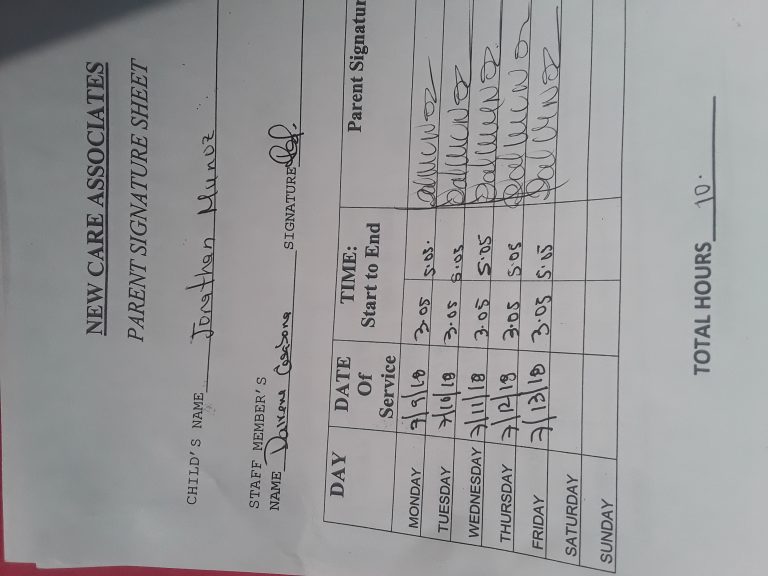 NEW CARE ASSOCIATES
PARENT SIGNATURE SHEET
CHILD'S NAME Jonathan Munoz
STAFF MEMBER'S
NAME SIGNATURE
DAY DATE Of Service TIME: Start to End Parent Signatur
MONDAY 7/9/18 3.05 5.05.
TUESDAY 7/10/18 3.05 5.05
WEDNESDAY 7/11/18 3.05 5.05
THURSDAY 7/12/18 3.05 5.05
FRIDAY 7/13/18 3.05 5.05
SATURDAY
SUNDAY
TOTAL HOURS 10.